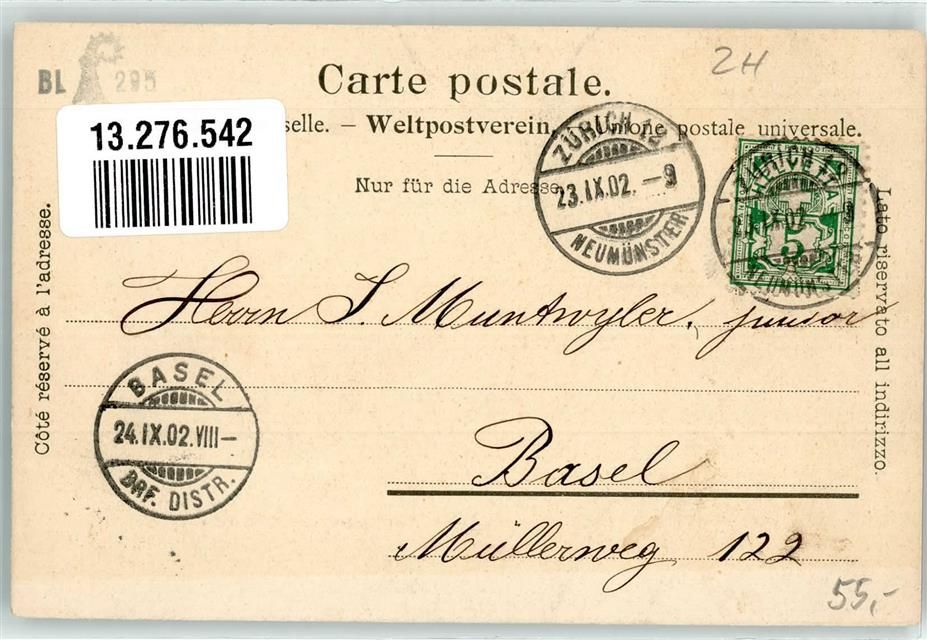 BL 295
2H
Carte postale.
13.276.542
selle. — Weltpostverein. Unione postale universale.
Nur für die Adresse.
ZÜRICH 12
23.IX.02. – 9
NEUMÜNSTER
ZÜRICH 12
IX.02
9
NEUMÜNSTER
HELVETIA
5
Côté réservé à l'adresse.
Lato riservato all indirizzo.
Herrn J. Muntwyler, junior
BASEL
24.IX.02.VIII–
BRF. DISTR.
Basel
Müllerweg 122
55,-